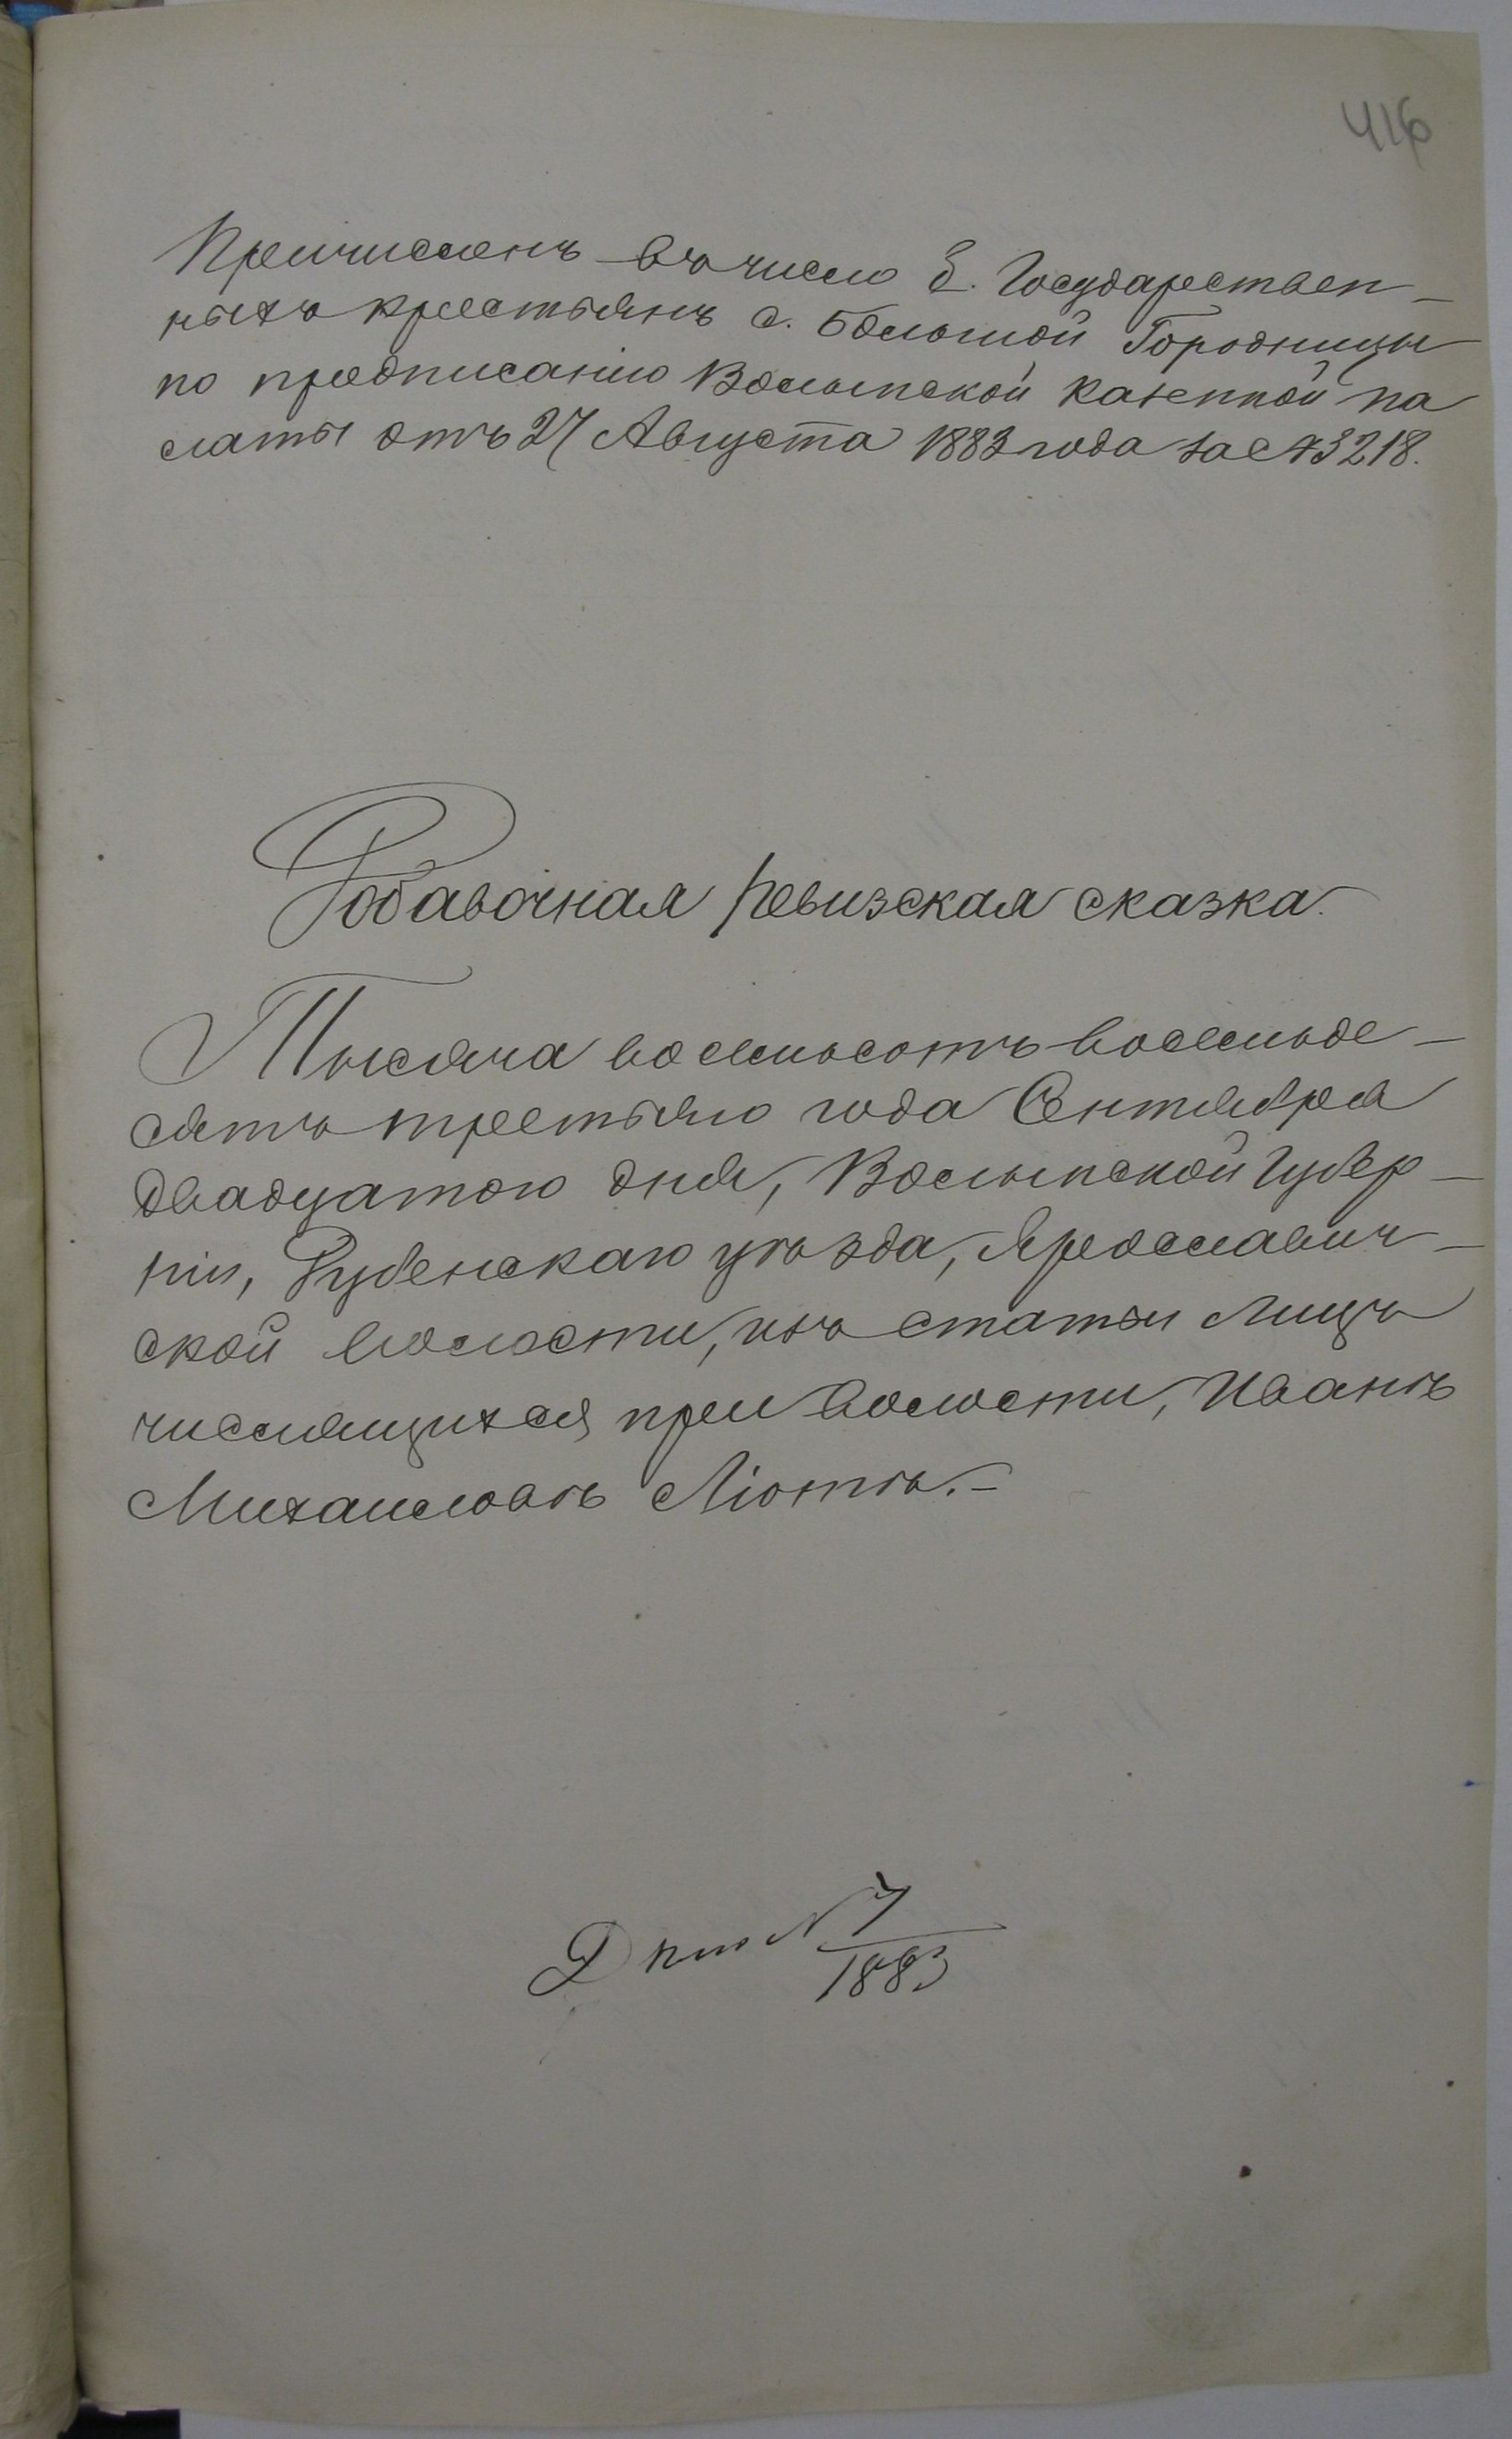 416
Причисленъ въ число б. Государствен-
ныхъ крестьянъ с. Большой Городницы
по предписанію Волынской Казенной па
латы отъ 27 Августа 1883 года за № 3218.
Добавочная ревизская сказка.
Тысяча восемьсотъ восемьде-
сятъ третьяго года Сентября
двадцатого дня, Волынской Губер-
ніи, Дубенскаго уѣзда, Ярославич-
ской волости, изъ статьи лицъ
числящихся при волости, Иванъ
Михаиловъ Лютъ.-
Д по № 7
1883